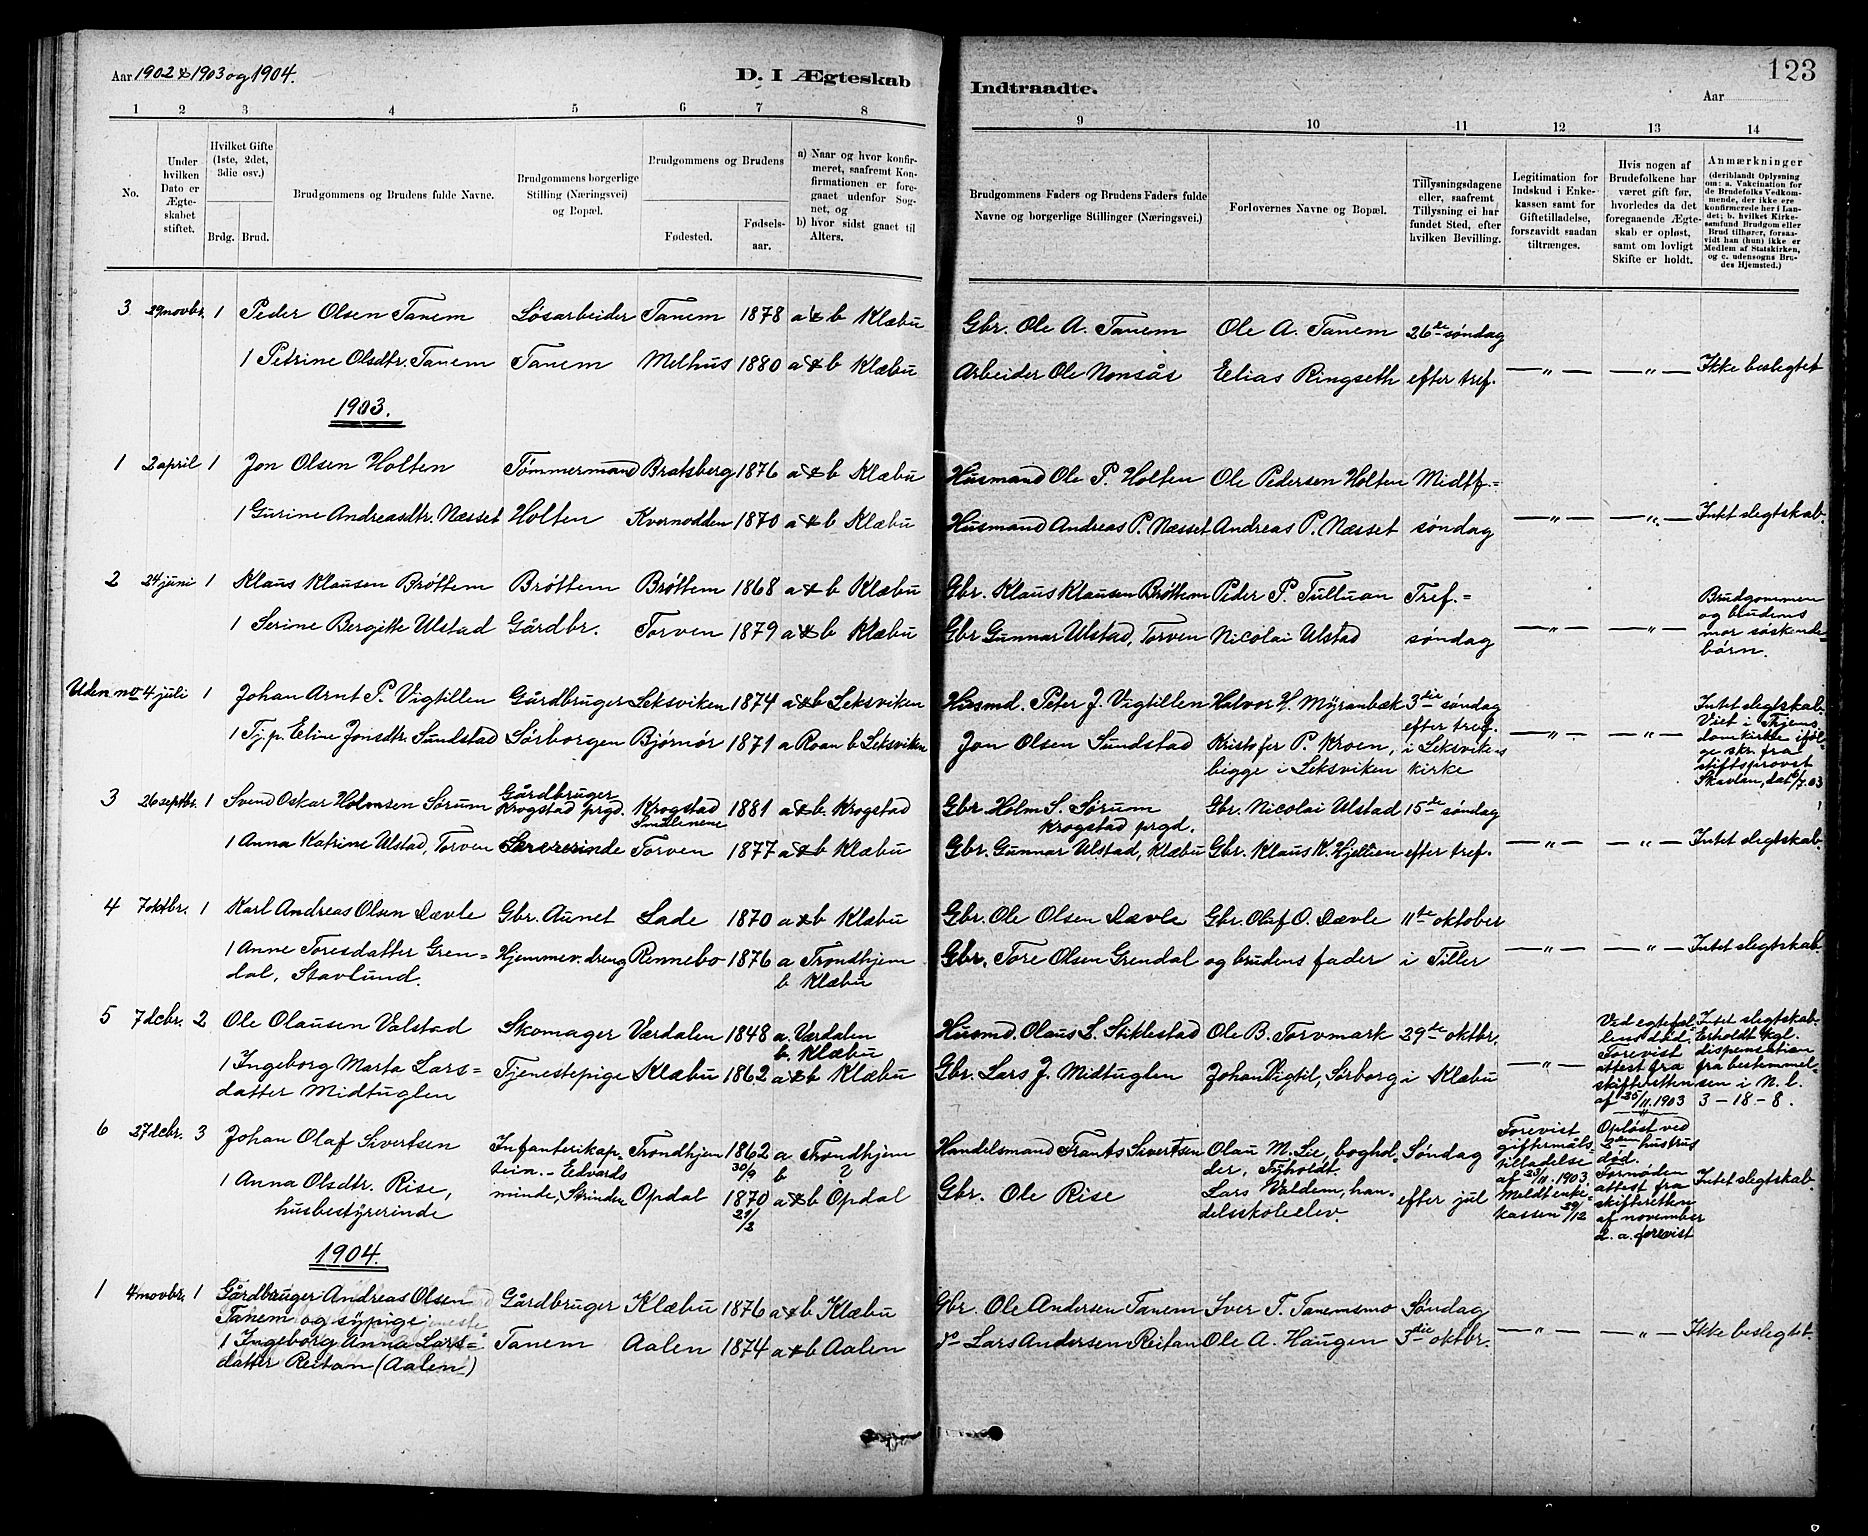 Aar 1902 & 1903 og 1904.
D. I Ægteskab
Indtraadte.
123
Aar
1 2 3 4 5 6 7 8
9 10 11 12 13 14
No.
Under hvilken Dato er Ægteskabet stiftet.
Hvilket Gifte (1ste, 2det, 3die osv.)
Brdg. Brud.
Brudgommens og Brudens fulde Navne.
Brudgommens borgerlige Stilling (Næringsvei) og Bopæl.
Brudgommens og Brudens
Fødested.
Fødselsaar.
a) Naar og hvor konfirmeret, saafremt Konfirmationen er foregaaet udenfor Sognet, og
b) hvor sidst gaaet til Alters.
Brudgommens Faders og Brudens Faders fulde Navne og borgerlige Stillinger (Næringsvei.)
Forlovernes Navne og Bopæl.
Tillysningsdagene eller, saafremt Tillysning ei har fundet Sted, efter hvilken Bevilling.
Legitimation for Indskud i Enkekassen samt for Giftetilladelse, forsaavidt saadan tiltrænges.
Hvis nogen af Brudefolkene har været gift før, hvorledes da det foregaaende Ægteskab er opløst, samt om lovligt Skifte er holdt.
Anmærkninger (deriblandt Oplysning om: a. Vakcination for de Brudefolks Vedkommende, der ikke ere konfirmerede her i Landet; b. hvilket Kirkesamfund Brudgom eller Brud tilhører, forsaavidt han (hun) ikke er Medlem af Statskirken, og c. udensogns Brudes Hjemsted.)
3 29 novbr. 1 Peder Olsen Tanem Løsarbeider Tanem 1878 a & b Klæbu Gbr. Ole A. Tanem Ole A. Tanem 26de søndag
1 Petrine Olsdtr. Tanem Tanem Melhus 1880 a & b Klæbu Arbeider Ole Nonsås Eelias Ringseth efter tref. — „ — — „ — Ikke beslegtet
1903.
1 2 april 1 Jon Olsen Holten Tømmermand Bratsberg 1876 a & b Klæbu Husmand Ole P. Holten Ole Pedersen Holten Midtf=
1 Gurine Andreasdtr. Næsset Holten Kvernodden 1870 a & b Klæbu Husmand Andreas P. Næsset Andreas P. Næsset søndag — „ — — „ — Intet slegtskab.
2 24 juni 1 Klaus Klausen Brøttem Brøttem Brøttem 1868 a & b Klæbu Gbr. Klaus Klausen Brøttem Peder P. Tulluan Tref.= Brudgommen
1 Serine Bergitte Ulstad Gårdbr. Torven 1879 a & b Klæbu Gbr Gunnar Ulstad, Torven Nicolai Ulstad søndag — „ — — „ — og brudens
mor søskende=
børn.
Uden no 4 juli 1 Johan Arnt P. Vigtillen Gårdbruger Leksviken 1874 a & b Leksviken Husmd. Peter J. Vigtillen Halvor H. Myranbæk 3die søndag Intet slegtskab.
1 Tj.p. Eline Jonsdtr. Sundstad Sørborgen Bjørnør 1871 a Roan b Leksviken Jon Olsen Sundstad Kristofer P. Kroen, efter tref. — „ — — „ — Viet i Trjems
begge i Leksviken i Leksvikens kirke domkirke iføl-
ge skr. fra
stiftsprovst
Skavlan, dat. 6/7 03
3 26 septbr. 1 Svend Oskar Holmsen Sørum Gårdbruger Krogstad prgd. Krogstad Smålenene 1881 a & b. Krogstad Gbr. Holm S. Sørum Krogstad prgd. Gbr. Nicolai Ulstad 15de søndag
1 Anna Katrine Ulstad, Torven Lærerinde Torven 1877 a & b Klæbu Gbr. Gunnar Ulstad, Klæbu Gbr. Klaus K. Hjellien efter tref. — „ — — „ — Intet slegtskab.
4 7 oktbr. 1 Karl Andreas Olsen Dævle Gbr. Aunet Lade 1870 a & b Klæbu Gbr. Ole Olsen Dævle Gbr. Oluf O. Dævle 11te oktober
1 Anne Toresdatter Gren= Hjemmev. dreng Rennebo 1876 a Trondhjem Gbr. Tore Olsen Grendal og brudens fader i Tiller — „ — — „ — Intet slegtskab.
dal, Stavlund. b Klæbu
5 7 dcbr. 2 Ole Olausen Valstad Skomager Værdalen 1848 a. Værdalen b. Klæbu Husmd. Olaus L. Stiklestad Ole B. Torvmark 29de oktbr. Ved egtefællens død. Forevist attest fra skifteretten af 30/11 1903 Intet slegtskab. Erholdt kgl. dispensation fra bestemmelsen i N. l. 3-18-8.
1 Ingeborg Marta Lars= Tjenestepige Klæbu 1862 a & b Klæbu Gbr. Lars J. Midtuglen Johan Vigtil, Sørborg i Klæbu — „ —
datter Midtuglen
6 27 dcbr. 3 Johan Olaf Sivertsen Infanterikaptein. - Edvards Trondhjem 1862 30/9 a Trondhjem b ? Handelsmand Frants Sivertsen Olau M. Lie, boghol-der, Tyholdt. Søndag Forevist giftermåls-tilladelse af 23/11 1903. Meldt enke-kassen 29/12 Opløst ved 2den hustrus død. Fornøden attest fra skifteretten af november d. a. forevist
1 Anna Olsdtr. Rise, minde, Strinden Opdal 1870 21/3 a & b Opdal Gbr. Ole Rise Lars Valdem, han-delsskoleelev. efter jul Intet slegtskab.
husbestyrerinde
1904.
1 4 novbr. 1 Gårdbruger Andreas Olsen Gårdbruger Klæbu 1876 a & b Klæbu Gbr. Ole Andersen Tanem Iver T. Tanemsmo Søndag
Tanem og sypige
1 Ingeborg Anna Lars= Tanem Aalen 1874 a & b Aalen Lars Andersen Reitan Ole A. Haugen 3die oktbr. — „ — — „ — Ikke beslegtet.
datter Reitan (Aalen)